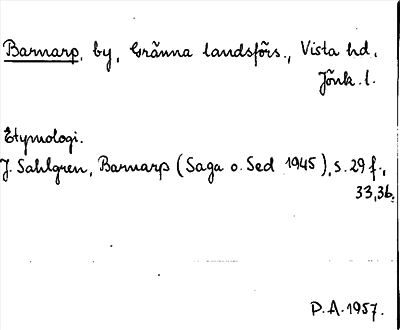 Barnarp, by, Gränna landsförs., Vista hd,
Jönk. l.
Etymologi.
J. Sahlgren, Barnarp (Saga o. Sed 1945), s. 29 f.,
33, 36.
D.A. 1957.